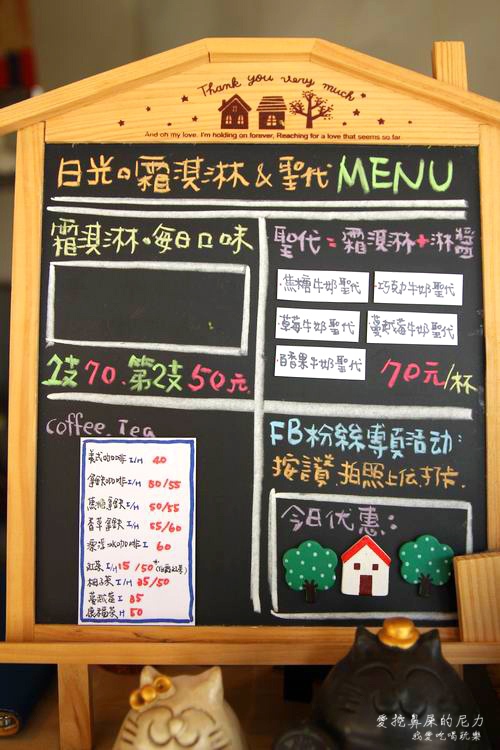 Thank you very much
And oh my love. I'm holding on forever, Reaching for a love that seems so far.
日光の霜淇淋&聖代 MENU
霜淇淋•每日口味
1支70.第2支50元
聖代=霜淇淋+淋醬
•焦糖牛奶聖代
•巧克力牛奶聖代
•草莓牛奶聖代
•蔓越莓牛奶聖代
•百香果牛奶聖代
70元/杯
coffee.Tea
美式咖啡 I/H 40
拿鉄咖啡 I/H 50/55
焦糖拿鉄 I/H 50/55
香草拿鉄 I/H 55/60
漂浮冰咖啡 I 60
紅茶 I/H 15/50
柚子茶 I/H 35/50
蔓越莓 I 35
康福茶 H 50
FB粉絲專頁活动:
按讚.拍照上伝打卡.
今日优惠:
愛挖鼻屎的尼力
我愛吃喝玩樂